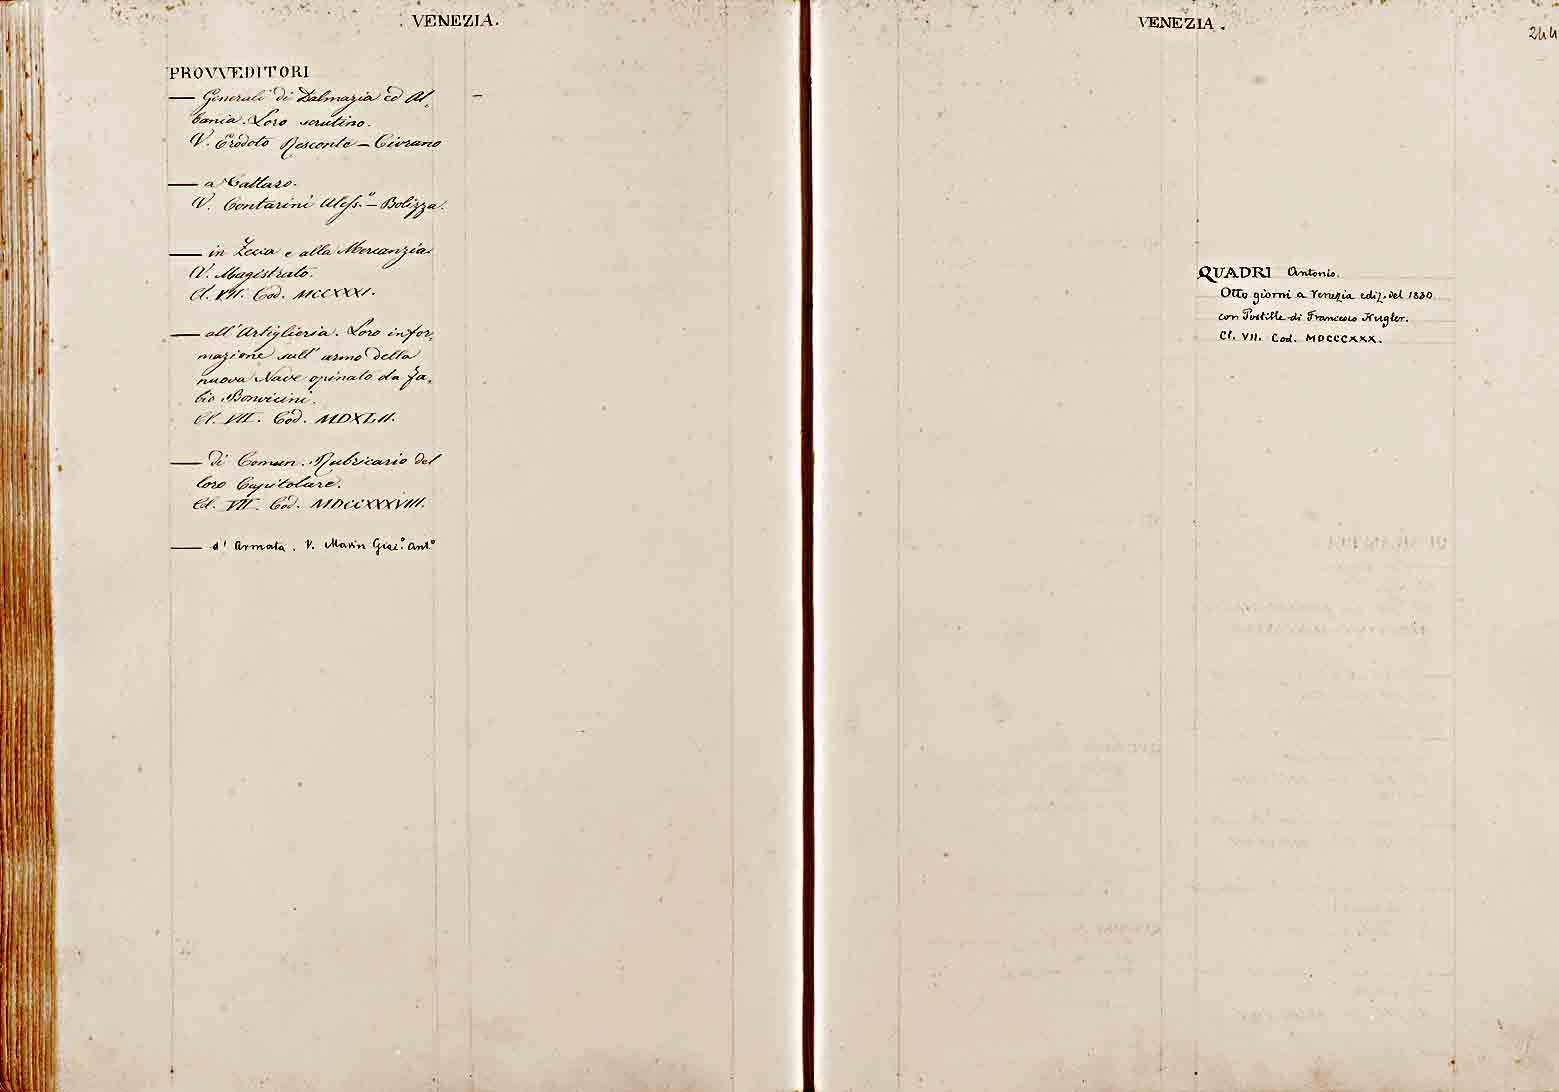 VENEZIA.
PROVVEDITORI
— Generali di Dalmazia ed Al-
bania. Loro scrutino.
V. Erodoto Resconte – Civrano
— a Cattaro.
V. Contarini Aless.º – Bolizza.
— in Zecca e alla Mercanzia.
V. Magistrato.
Cl. VII. Cod. MCCXXXI.
— all' Artiglieria. Loro infor-
mazione sull' armo della
nuova Nave opinato da Fa-
bio Bonvicini.
Cl. VII. Cod. MDXLII.
— di Comun. Rubricario del
loro Capitolare.
Cl. VII. Cod. MDCCXXXVIII.
— d' Armata. V. Marin Giac.º Ant.º
–
VENEZIA.
244
QUADRI Antonio.
Otto giorni a Venezia ediz. del 1830
con Postille di Francesco Kugler.
Cl. VII. Cod. MDCCCXXX.